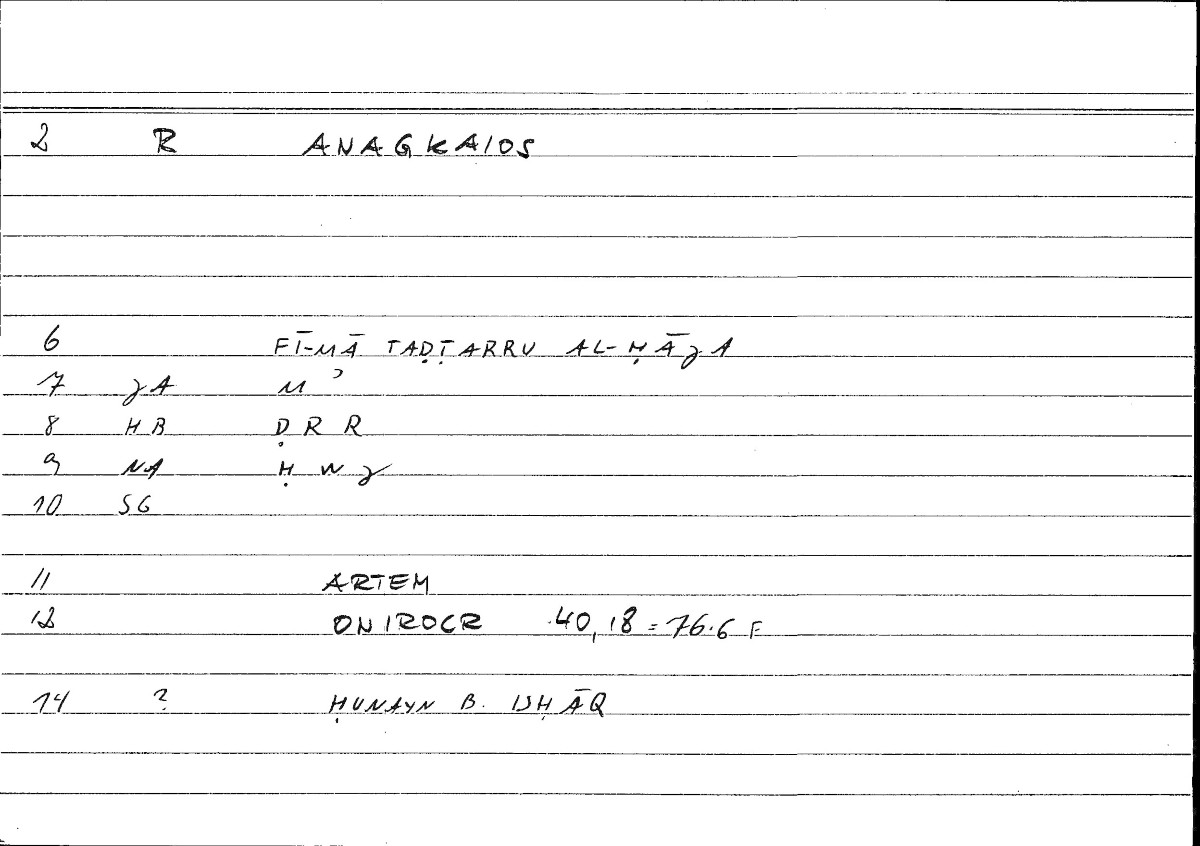 2 R ANAGKAIOS
6 FĪ-MĀ TAḌṬARRU AL-ḤĀǧA
7 ǧA Mʾ
8 HB ḌRR
9 NA ḤWǧ
10 SG
11 ARTEM
12 ONIROCR 40,18=76.6 F
14 ? ḤUNAYN B. ISḤĀQ